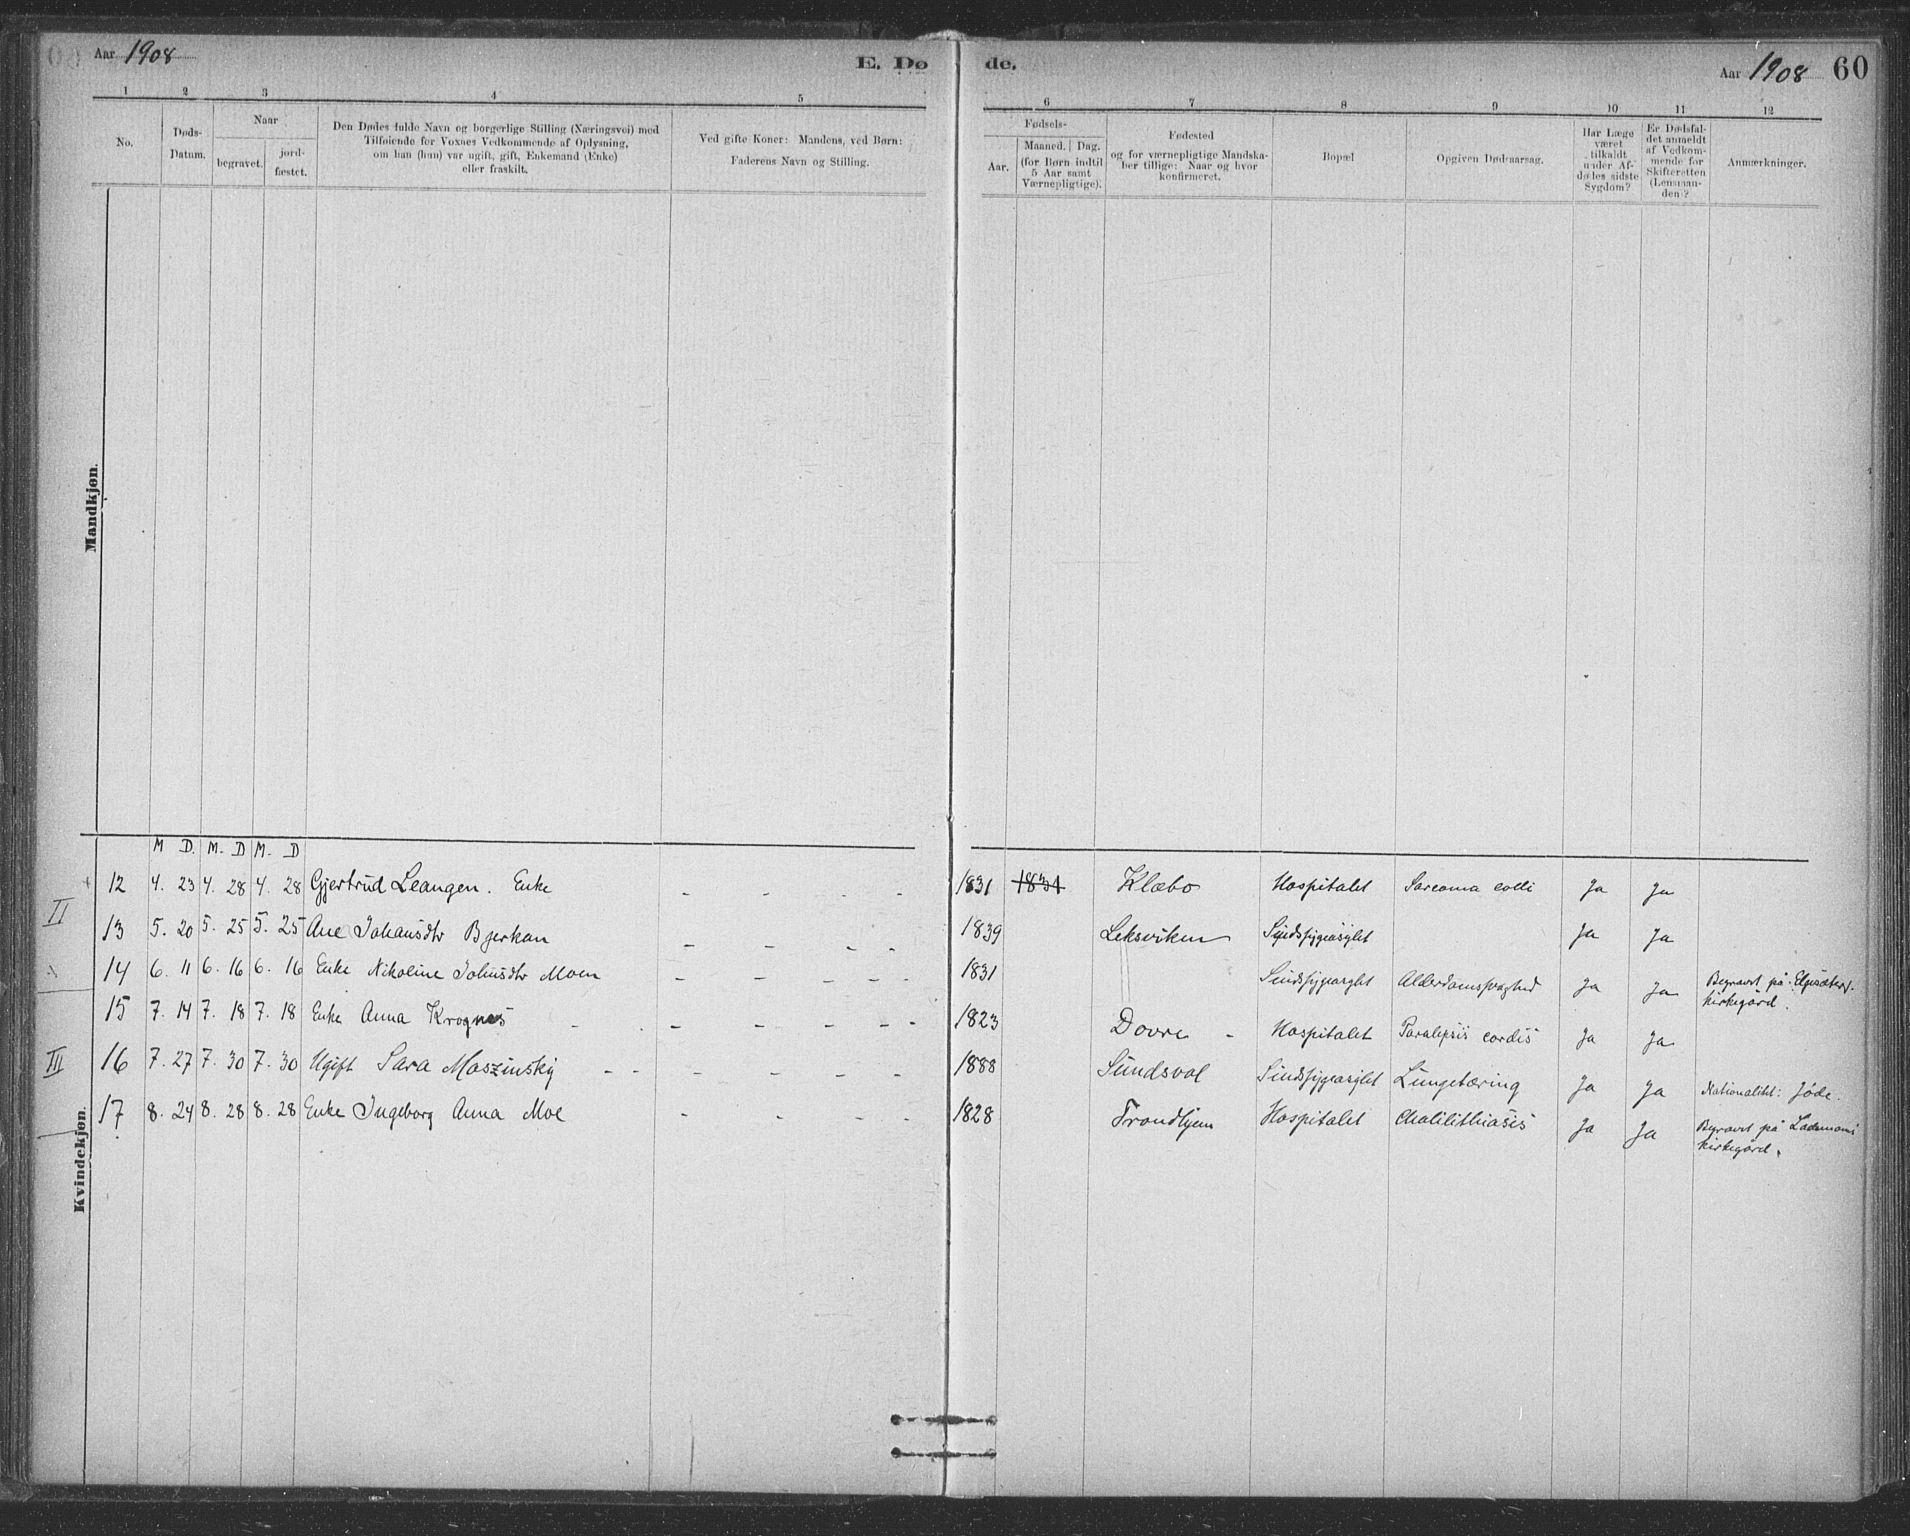 Aar 1908
E. Døde.
Aar 1908 60
1 2 3 4 5 6 7 8 9 10 11 12
No.
Døds-
Datum.
Naar
begravet.
jord-
fæstet.
Den Dødes fulde Navn og borgerlige Stilling (Næringsvei) med
Tilføiende for Voxnes Vedkommende af Oplysning,
om han (hun) var ugift, gift, Enkemand (Enke)
eller fraskilt.
Ved gifte Koner: Mandens, ved Børn:
Faderens Navn og Stilling.
Fødsels-
Aar.
Maaned. Dag.
(for Børn indtil
5 Aar samt
Værnepligtige).
Fødested
og for værnepligtige Mandska-
ber tillige: Naar og hvor
konfirmeret.
Bopæl
Opgiven Dødsaarsag.
Har Læge
været
tilkaldt
under Af-
dødes sidste
Sygdom?
Er Dødsfal-
det anmeldt
af Vedkom-
mende for
Skifteretten
(Lensman-
den)?
Anmærkninger.
Mandkjøn.
M D. M. D M. D
12 4. 23 4. 28 4. 28 Gjertrud Leangen. Enke - - - - - 1831 1831 Klæbo Hospitalet Sarcoma colli Ja Ja
II
13 5. 20 5. 25 5. 25 Ane Johansdtr Bjerkan - - - - 1839 Leksviken Sindssygeasylet Ja Ja
14 6. 11 6. 16 6. 16 Enke Nikoline Johnsdtr Moen - - - - - 1831 Sindssygeasylet Alderdomssvaghed Ja Ja Begravet på Elgesæter
kirkegård.
15 7. 14 7. 18 7. 18 Enke Anna Krognes - - - - - - 1823 Dovre - Hospitalet Paralepsis cordis Ja Ja
III
16 7. 27 7. 30 7. 30 Ugift Sara Moszinsky - - - - - - 1888 Sundsval Sindssygeasylet Lungetæring Ja Ja Nationalitet: Jøde.
17 8. 24 8. 28 8. 28 Enke Ingeborg Anna Moe - - - - 1828 Trondhjem Hospitalet Cholilithiasis Ja Ja Begravet på Lademoens
kirkegård.
Kvindekjøn.